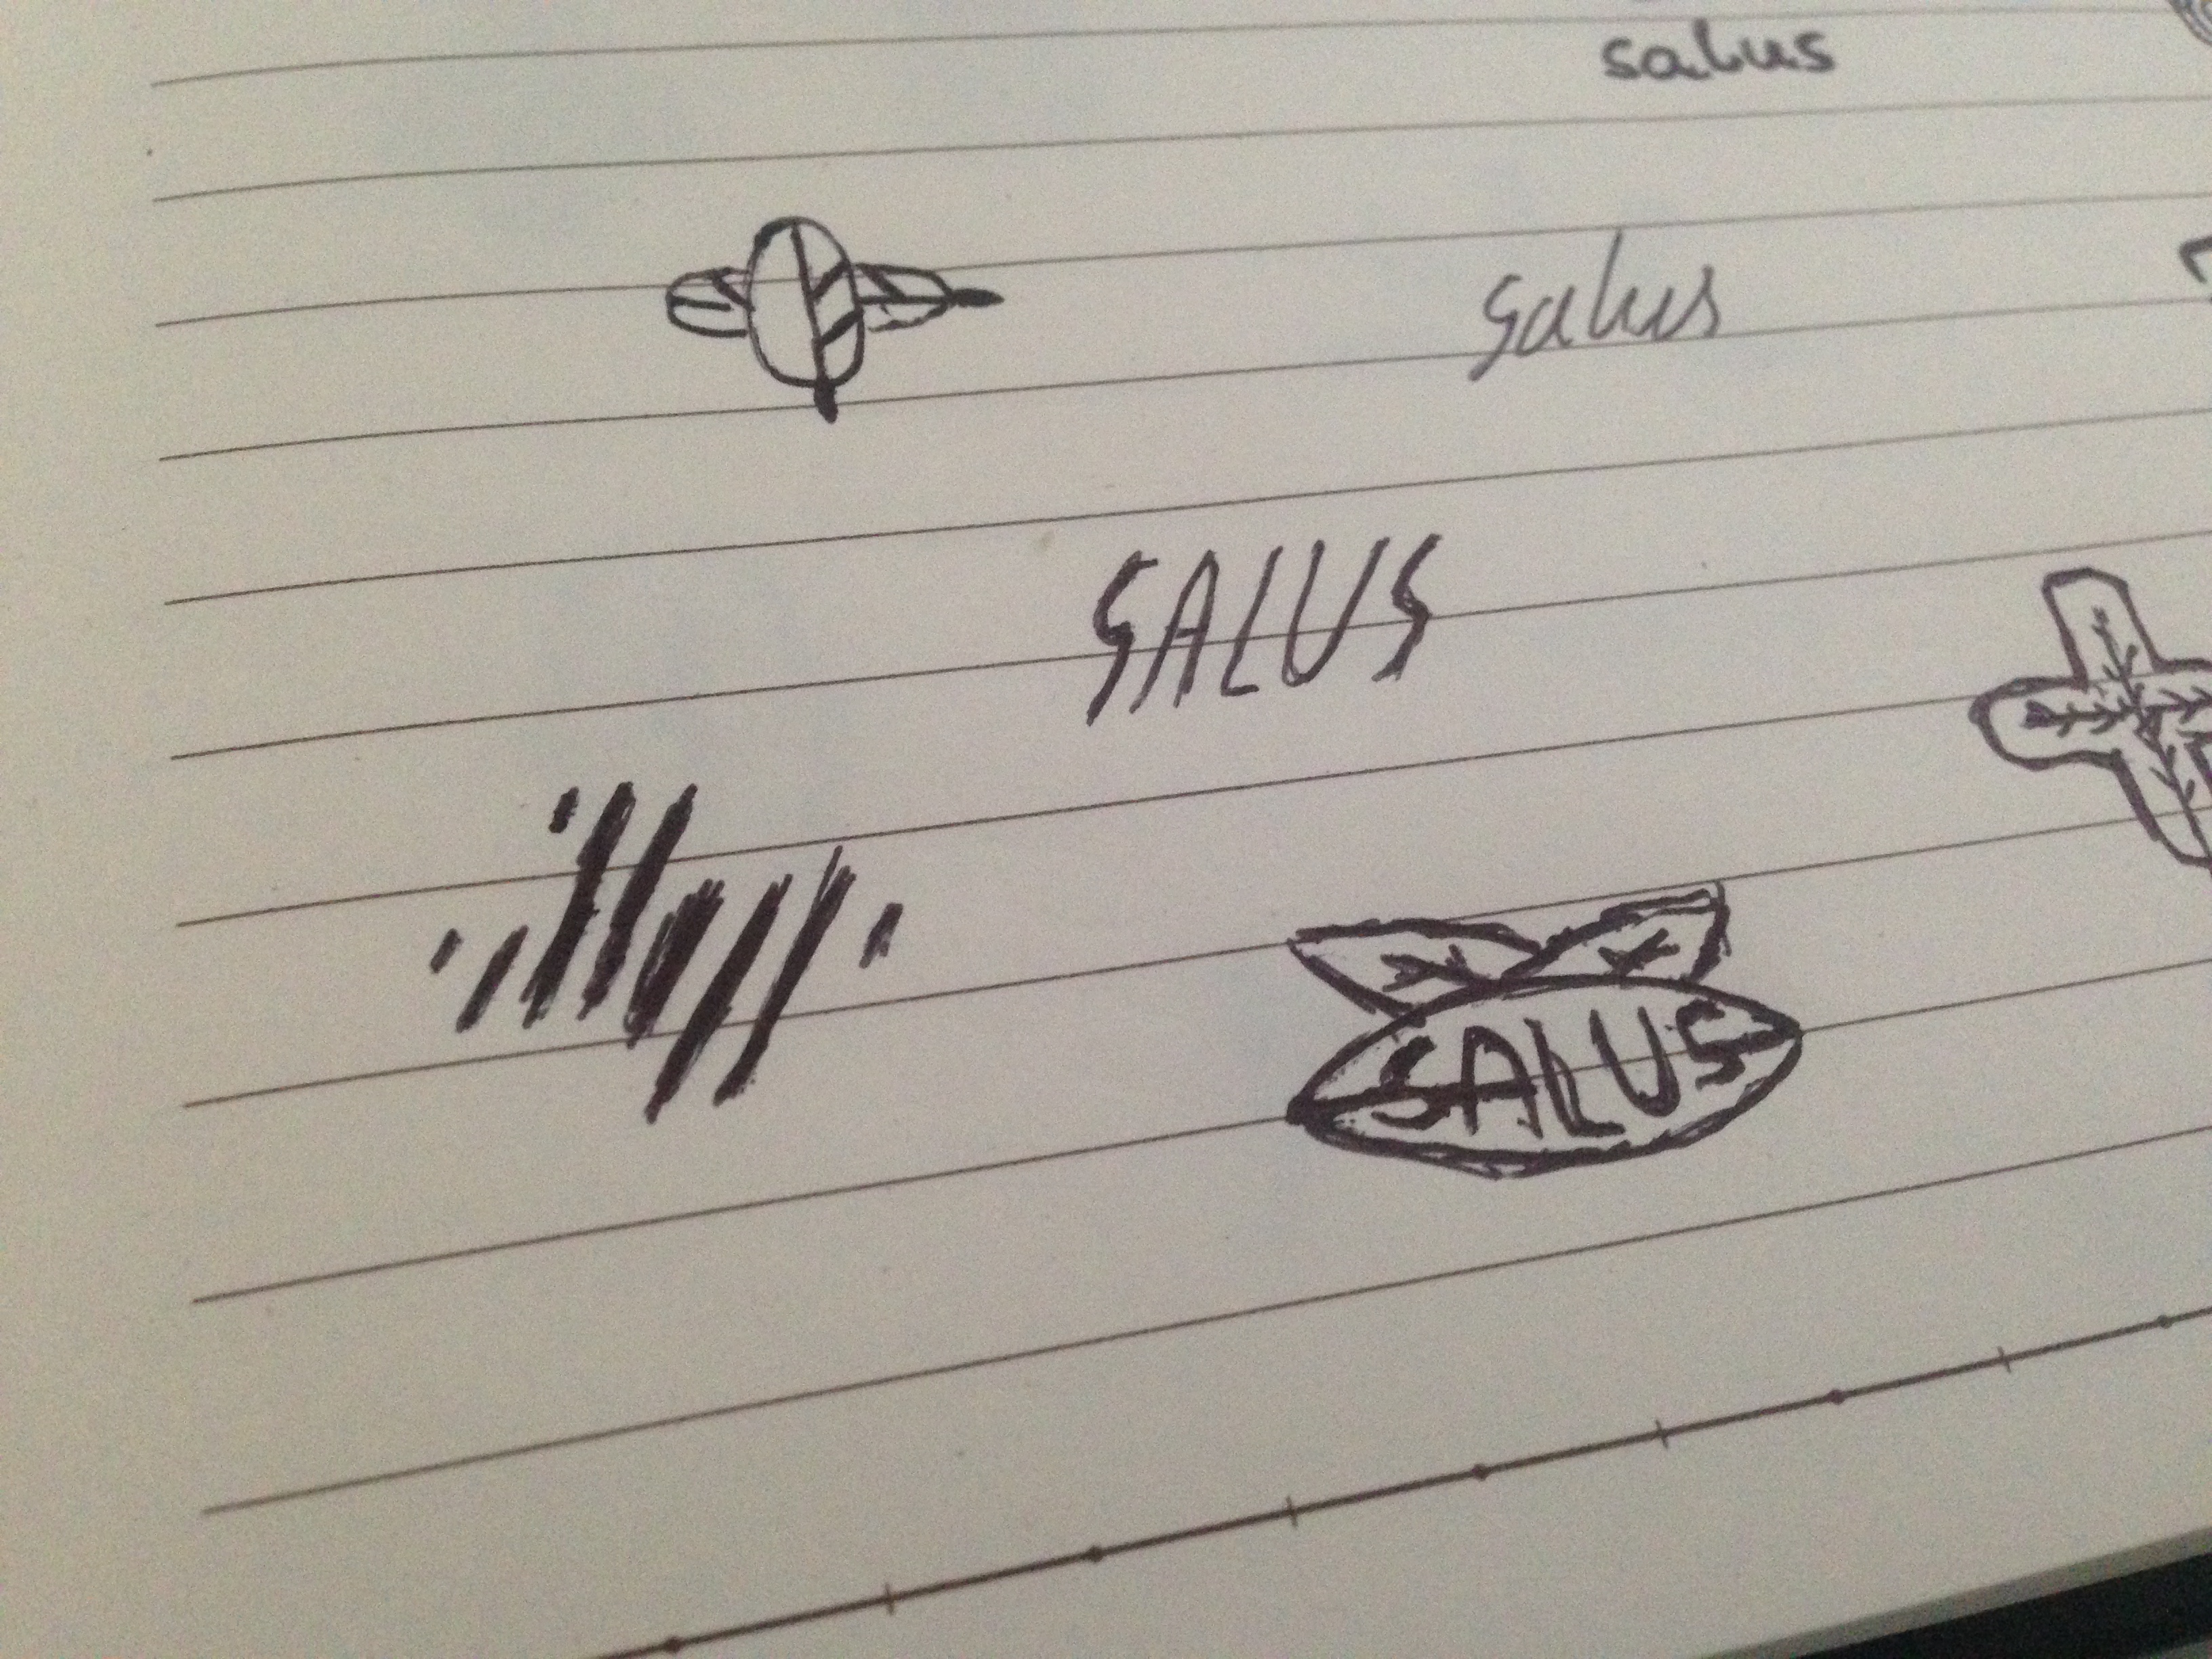 salus
salus
SALUS
SALUS